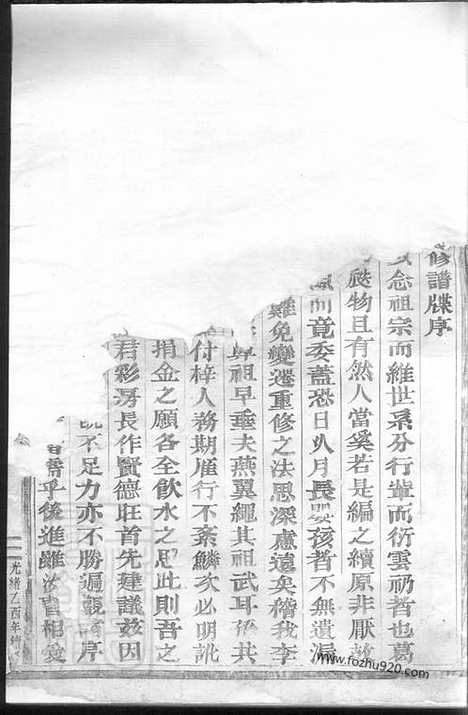 修譜牒序
念祖宗而維世系分行輩而衍雲礽者也葛
物且有然人當奚若是編之續原非厭故
而竟委蓋恐日久月長嬰孩者不無遺漏
難免變遷重修之法思深慮遠矣稽我李
祖早垂夫燕翼繩其祖武耳孫共
付梓人務期雁行不紊鱗次必明訛
捐金之願各全飲水之思此則吾之
君彩房長作賢德旺首先建議玆因
不足力亦不勝遍親 序
乎後進雖
光緒乙酉年
www.fozhu920.com